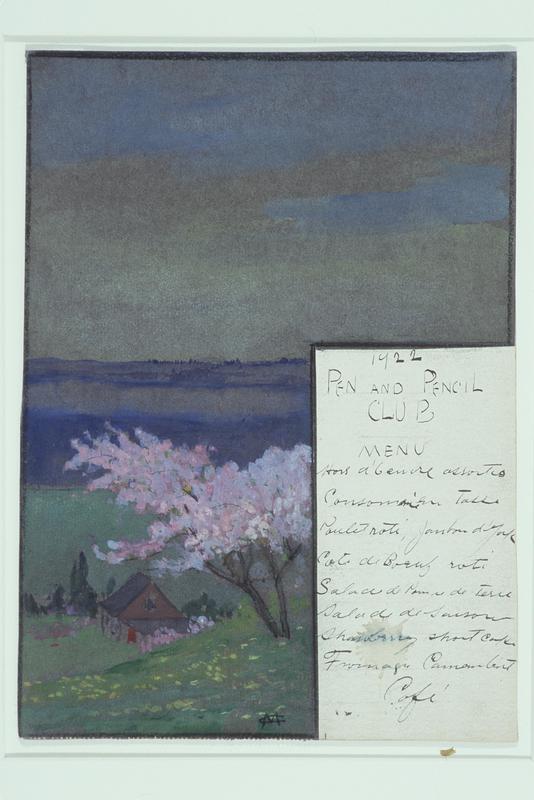 1922
PEN AND PENCIL
CLUB
MENU
Hors d'oeuvre assortis
Consommé en tasse
Poulet roti, Jambon d'York
Cote de Boeuf roti
Salade de Pomme de terre
Salade de Saison
Strawberry short cake
Fromage Camembert
Café